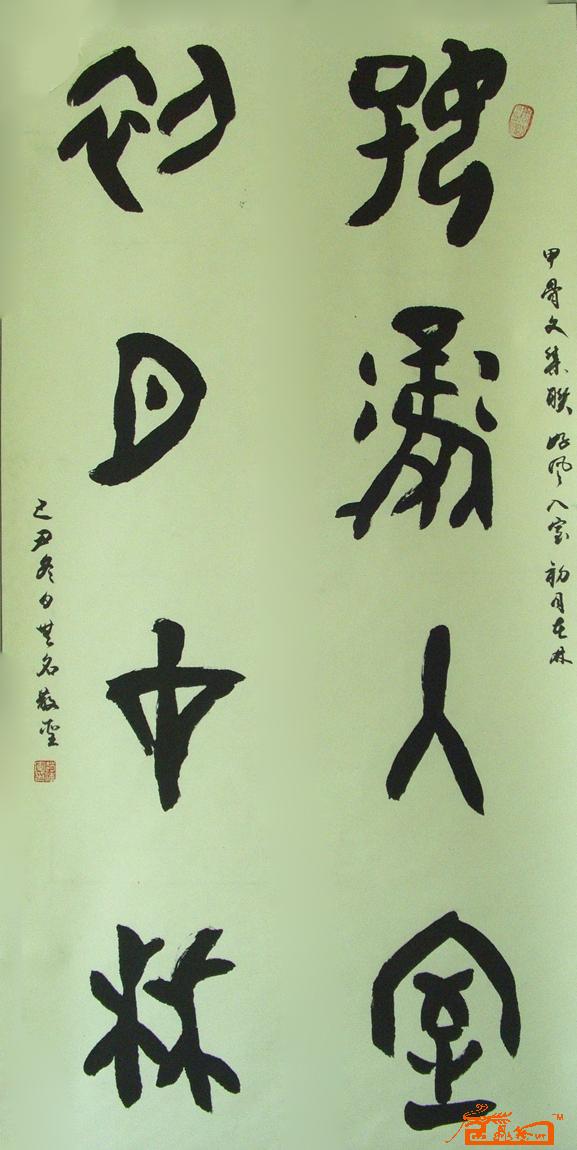 甲骨文集联 好风入室 初月在林
好风入室
初月在林
己丑冬日 敬书